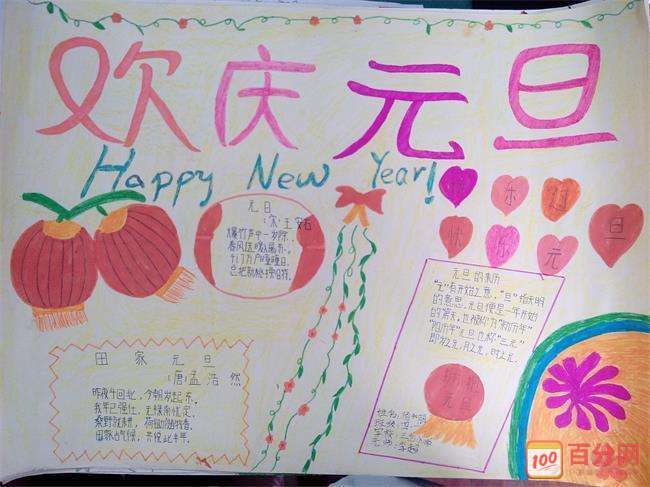 欢庆元旦
Happy New Year!
快乐
元旦
元日
(宋)王安石
爆竹声中一岁除,
春风送暖入屠苏。
千门万户曈曈日,
总把新桃换旧符。
田家元旦
(唐)孟浩然
昨夜斗回北,今朝岁起东。
我年已强仕,无禄尚忧农。
田家占气候,共说此年丰。
元旦的来历
"元"有开始之意,"旦"指天明
的意思。元旦便是一年开始
的第一天,也被称为"新历年"
"阳历年"元旦也称"三元"
即岁之元,月之元,时之元。
百分网
100